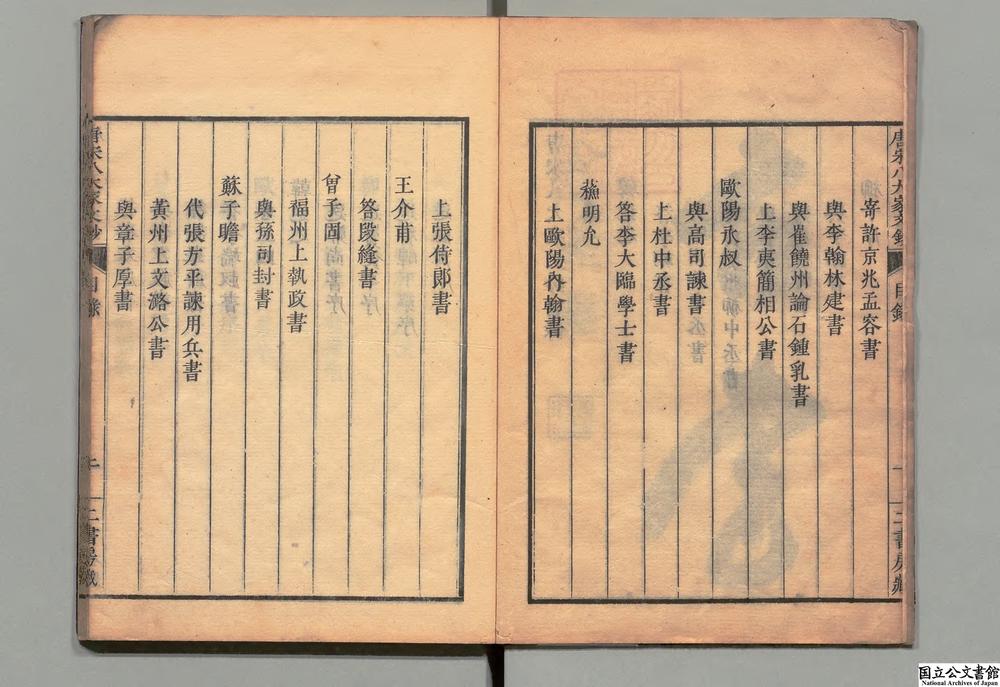 唐宋八大家文鈔
目錄
一
二書房藏
寄許京兆孟容書
與李翰林建書
與崔饒州論石鍾乳書
上李夷簡相公書
歐陽永叔
與高司諫書
上杜中丞書
答李大臨學士書
蘓明允
上歐陽內翰書
上張侍郎書
王介甫
答段縫書
曾子固
福州上執政書
與孫司封書
蘇子瞻
代張方平諫用兵書
黃州上文潞公書
與章子厚書
唐宋八大家文鈔
目錄
二書房藏
国立公文書館
National Archives of Japan